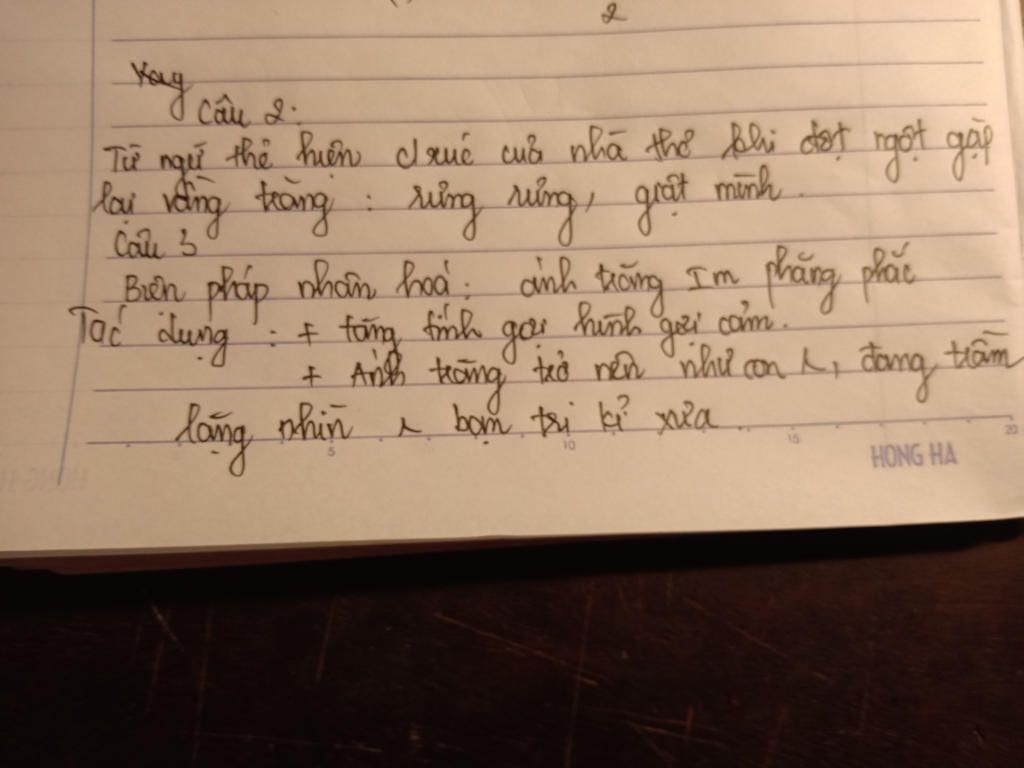 2
Câu 2:
Từ ngữ thể hiện cxúc của nhà thơ khi đột ngột gặp
lại vầng trăng : rưng rưng, giật mình.
Câu 3
Biện pháp nhân hoá: ánh trăng Im phăng phắc
Tác dụng : + tăng tính gợi hình gợi cảm.
+ Ánh trăng trở nên như con, đang trầm
lặng nhìn bạn tri kỉ xưa
5 10 15 20
HONG HA